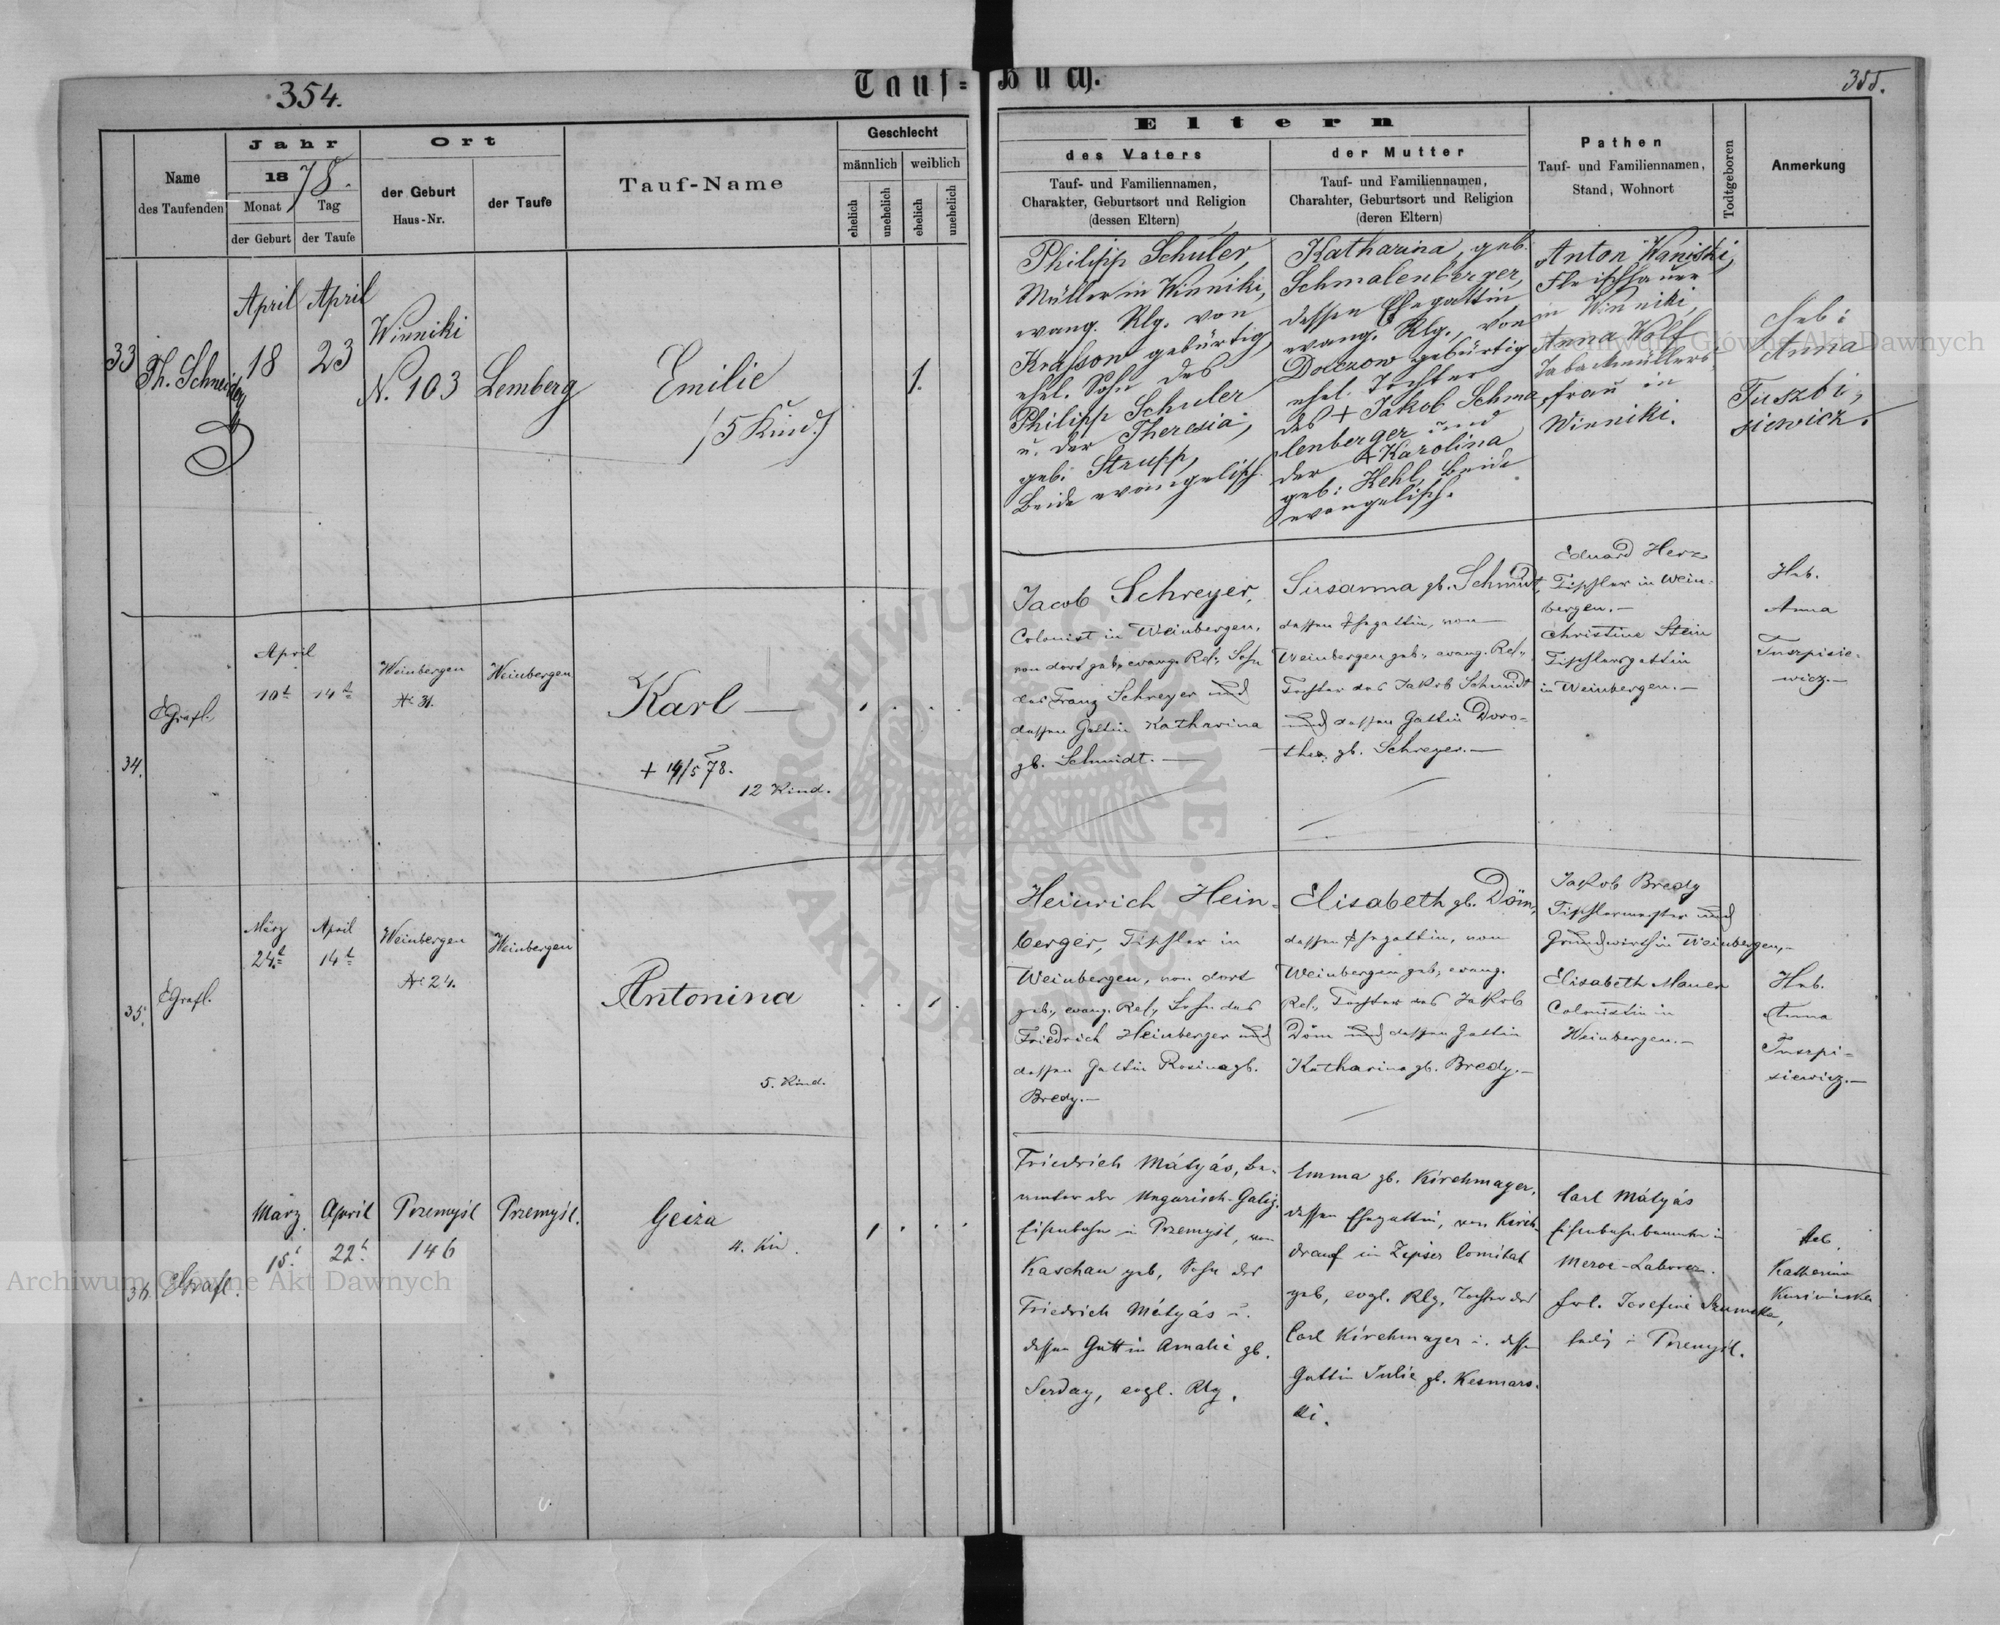 354.
Tauf-Buch.
355.
Name
des Taufenden
Jahr
1878.
Monat
Tag
der Geburt
der Taufe
Ort
der Geburt
Haus-Nr.
der Taufe
Tauf-Name
Geschlecht
männlich
weiblich
ehelich
unehelich
ehelich
unehelich
Eltern
des Vaters
Tauf- und Familiennamen,
Charakter, Geburtsort und Religion
(dessen Eltern)
der Mutter
Tauf- und Familiennamen,
Charakter, Geburtsort und Religion
(deren Eltern)
Pathen
Tauf- und Familiennamen,
Stand, Wohnort
Todtgeboren
Anmerkung
33
Th. Schneider
April
18
April
23
Winniki
N. 103
Lemberg
Emilie
/5 Kind./
1.
Philipp Schuler,
Müller in Winniki,
evang. Rlg. von
gebürtig,
ehel. Sohn des
Philipp Schuler
u. der Theresia,
geb. Strupp,
Beide evangelisch.
Katharina, geb.
Schmalenberger,
dessen Ehegattin
evang. Rlg., von
gebürtig
ehel. Tochter
des + Jakob Schma
lenberger und
der + Karolina
geb: Kehl, Beide
evangelisch.
Anton
Fleischhauer
in Winniki,
Anna Wolf
frau in
Winniki.
Heb:
Anna
Tuszbi,
siewicz.
34.
April
10t
14t
Weinbergen
No 31.
Weinbergen
Karl —
+ 19/5 78.
12 Kind.
Jacob Schreyer,
Colonist in Weinbergen,
von dort geb., evang. Rel., Sohn
des Franz Schreyer und
dessen Gattin Katharina
gb. Schmidt. —
Susanna gb. Schmidt,
dessen Ehegattin, von —
Weinbergen geb., evang. Rel.,
Tochter des Jakob Schmidt
und dessen Gattin Doro-
thea gb. Schreyer. —
Eduard Herz
Tischler in Wein-
bergen. —
Christine Stein
Tischlersgattin
in Weinbergen. —
Heb.
Anna
Tuszpisie-
wicz. —
35.
März
24t
April
14t
Weinbergen
No 24.
Weinbergen
Antonina
5. Kind.
Heinrich Hein-
berger, Tischler in
Weinbergen, von dort
geb., evang. Rel., Sohn des
Friedrich Heinberger und
dessen Gattin Rosina gb.
Bredy. —
Elisabeth gb. Döm,
dessen Ehegattin, von
Weinbergen geb., evang.
Rel., Tochter des Jakob
Döm und dessen Gattin
Katharina gb. Bredy. —
Jakob Bredy
Tischlermeister und
Grundwirth in Weinbergen, —
Elisabeth Mauer
Colonistin in
Weinbergen. —
Heb.
Anna
Tuszpi-
siewicz. —
36.
März
15t
April
22t
Przemysl
146
Przemysl.
Geiza
4. Kin.
Friedrich Mátyás, Be-
amter der Ungarisch-Galiz.
Eisenbahn in Przemysl, von
Kaschau geb, Sohn des
Friedrich Mátyás u.
dessen Gattin Amalie gb.
Serday, evgl. Rlg.
Emma gb. Kirchmayer,
dessen Ehegattin, von Kirch-
drauf im Zipser Comitat
geb, evgl. Rlg, Tochter des
Carl Kirchmayer u. dessen
Gattin Julie gb. Kesmars-
ki.
Carl Mátyás
Eisenbahnbeamter in
Frl. Josefine
ledig in Przemysl.
Heb.
Katharina
Archiwum Główne Akt Dawnych
Archiwum Główne Akt Dawnych
ARCHIWUM GŁÓWNE
AKT DAWNYCH